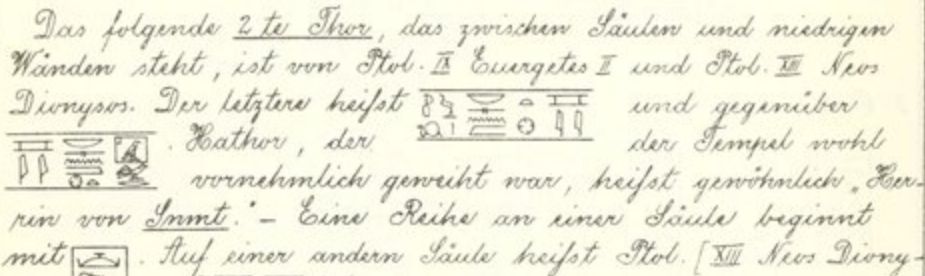 Das folgende 2 te Thor, das zwischen Säulen und niedrigen
Wänden steht, ist von Ptol. IX Euergetes II und Ptol. XIII Neos
Dionysos. Der letztere heifst und gegenüber
. Hathor, der der Tempel wohl
vornehmlich geweiht war, heifst gewöhnlich „Her-
rin von Snmt." – Eine Reihe an einer Säule beginnt
mit . Auf einer andern Säule heifst Ptol. [XIII Neos Diony-